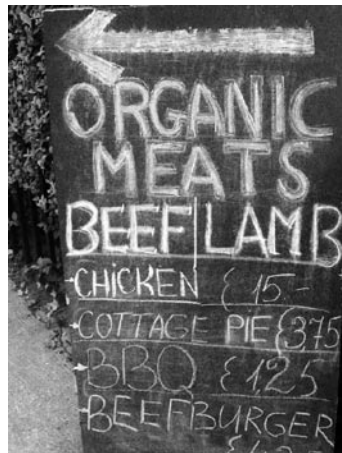 ORGANIC
MEATS
BEEF|LAMB
-CHICKEN £15-
-COTTAGE PIE £375
-BBQ £125
-BEEFBURGER